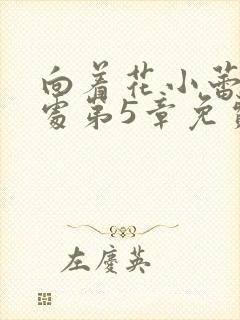 向着花小蕾
处第5章免费
左庆英